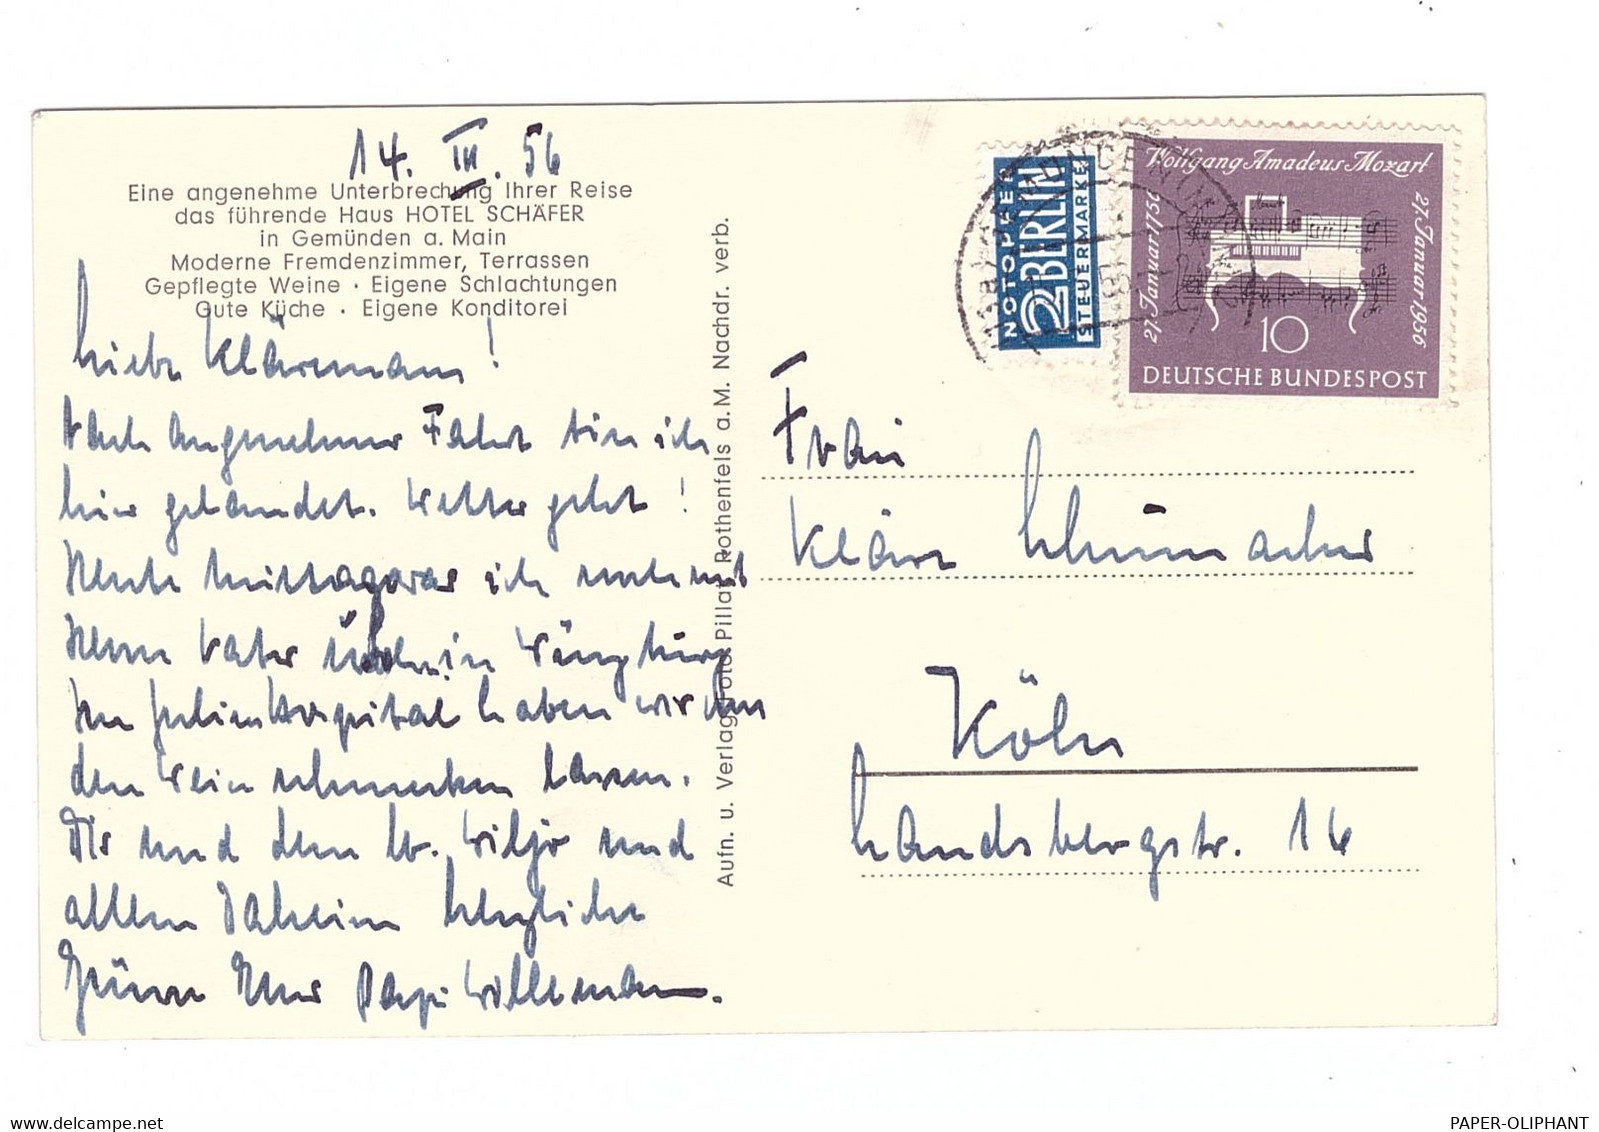 14. III. 56
Eine angenehme Unterbrechung Ihrer Reise
das führende Haus HOTEL SCHÄFER
in Gemünden a. Main
Moderne Fremdenzimmer, Terrassen
Gepflegte Weine · Eigene Schlachtungen
Gute Küche · Eigene Konditorei
Liebe Kläremam!
Nach angenehmer Fahrt bin ich
hier gelandet. Wetter geht!
Heute Mittag war ich noch mit
Herrn Vater in Würzburg
Im Juliusspital haben wir uns
den Wein schmecken lassen.
Dir und dem lb. Wiljo und
allen Daheim herzliche
Grüsse Euer Papi
Aufn. u. Verlag Foto Pillat, Rothenfels a. M. Nachdr. verb.
NOTOPFER
2 BERLIN
STEUERMARKE
Wolfgang Amadeus Mozart
27. Januar 1756
27. Januar 1956
10
DEUTSCHE BUNDESPOST
Frau
Kläre Schumacher
Köln
Landsbergstr. 16
PAPER-OLIPHANT